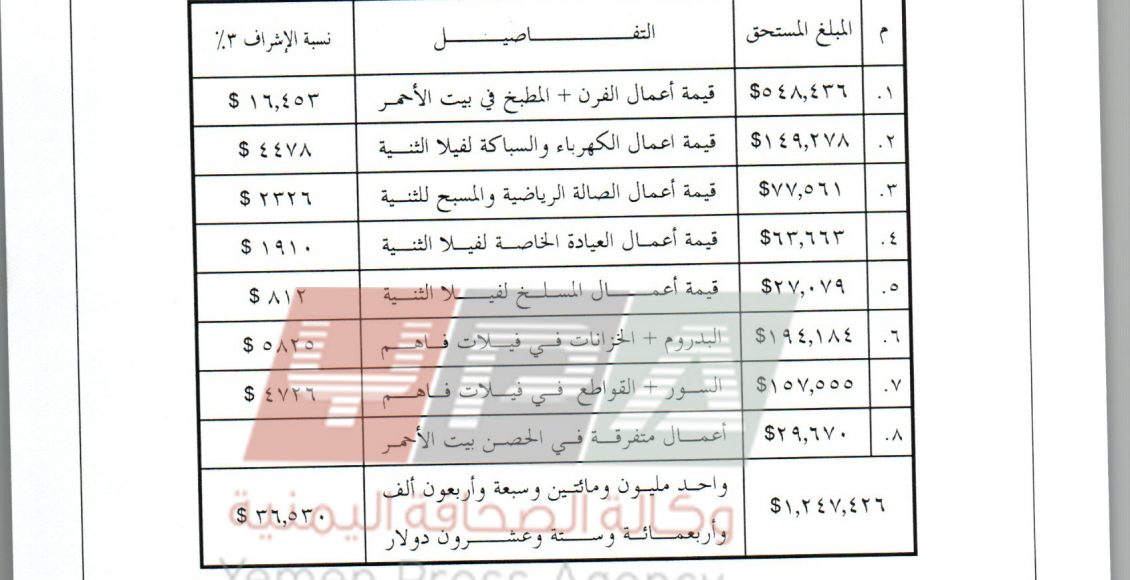 م المبلغ المستحق التفـــــــاصيـــــل نسبة الإشراف ٣٪
١. $٥٤٨,٤٣٦ قيمة أعمال الفرن + المطبخ في بيت الأحمر ١٦,٤٥٣ $
٢. $١٤٩,٢٧٨ قيمة اعمال الكهرباء والسباكة لفيلا الثنية ٤٤٧٨ $
٣. $٧٧,٥٦١ قيمة أعمال الصالة الرياضية والمسبح للثنية ٢٣٢٦ $
٤. $٦٣,٦٦٣ قيمة أعمال العيادة الخاصة لفيلا الثنية ١٩١٠ $
٥. $٢٧,٠٧٩ قيمة أعمـــــال المسلـــخ لفيـــــلا الثنـيـــة ٨١٢ $
٦. $١٩٤,١٨٤ البدروم + الخزانات في فيــلات فــاهـــم ٥٨٢٥ $
٧. $١٥٧,٥٥٥ الســـور + القواطع في فيــلات فــاهـــم ٤٧٢٦ $
٨. $٢٩,٦٧٠ أعمـــال متفـرقـــة في الحصـن بيـت الأحمر
واحـد مليـون ومـائتيـن وسبعة وأربعون ألف
$١,٢٤٧,٤٢٦ ٣٦,٥٣٠ $
وأربعمـــائـــة وستـــة وعشــــرون دولار
YPA
وكالة الصحافة اليمنية
Yemen Press Agency